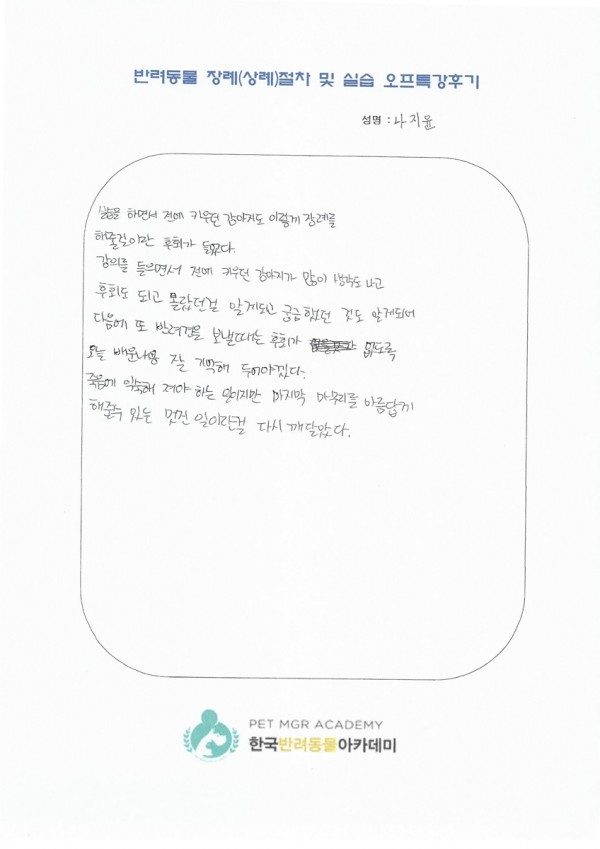 반려동물 장례(상례)절차 및 실습 오프특강후기
성명 : 나지윤
실습을 하면서 전에 키우던 강아지도 이렇게 장례를
해줄걸이란 후회가 들었다.
강의를 들으면서 전에 키우던 강아지가 많이 생각도 나고
후회도 되고 몰랐던걸 알게되고 궁금했던 것도 알게되어
다음에 또 반려견을 보낼때는 후회가 없도록
오늘 배운내용 잘 기억해 두어야겠다.
죽음에 익숙해 져야 하는 일이지만 마지막 마무리를 아름답게
해줄수 있는 멋진 일이란걸 다시 깨달았다.
PET MGR ACADEMY
한국반려동물아카데미